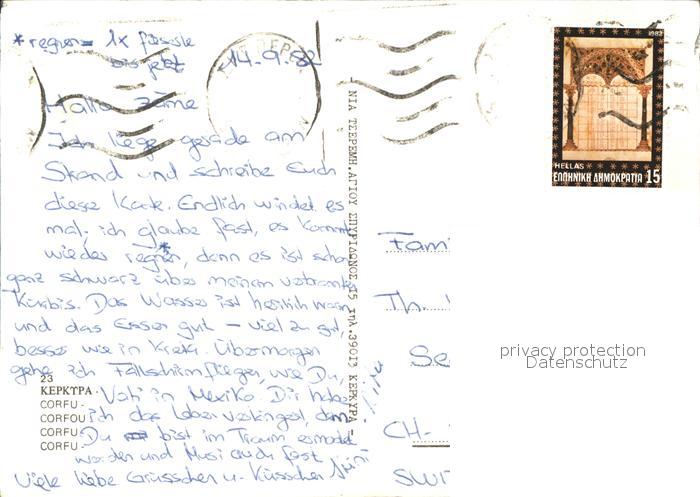 * regnen = 1x gieselte
bis jetzt
14.9.82
Hallo zäme
Ich liege gerade am
Strand und schreibe Euch
diese Karte. Endlich windet es
mal, ich glaube fast, es kommt
wieder regnen*, denn es ist schon
ganz schwarz über meinem verbrannten
Kürbis. Das Wasser ist herrlich warm
und das Essen gut – viel zu gut
besser wie in Kreta. Übermorgen
gehe ich Fallschirmfliegen, wie Du,
Vati in Mexiko. Dir habe
ich das Leben verlängert, denn
Du bist im Traum ermordet
worden und Musi auch fast
Viele liebe Grüsschen u. Küsschen
23
ΚΕΡΚΥΡΑ
CORFU
CORFOU
CORFU
CORFU
ΝΙΑ ΤΣΕΡΕΜΗ, ΑΓΙΟΥ ΣΠΥΡΙΔΩΝΟΣ 15 τηλ. 39013 ΚΕΡΚΥΡΑ
1982
HELLAS
ΕΛΛΗΝΙΚΗ ΔΗΜΟΚΡΑΤΙΑ 15
Fami
Th.
Se
CH-
SWI
privacy protection
Datenschutz